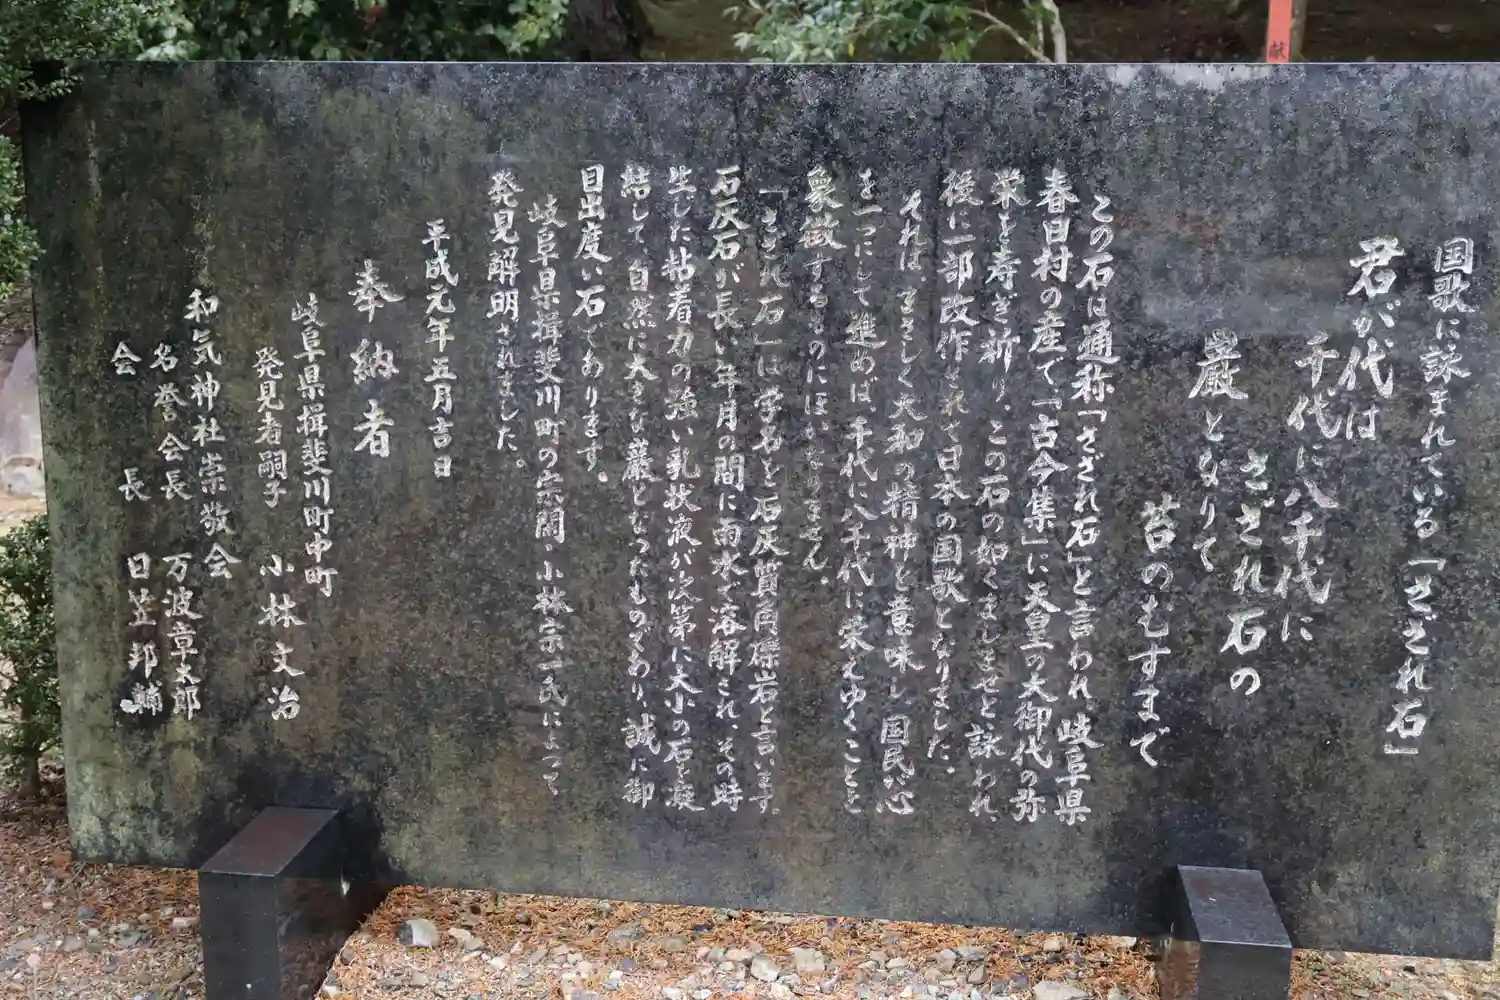 国歌に詠まれている「さざれ石」
君が代は
千代に八千代に
さざれ石の
巌となりて
苔のむすまで
この石は通称「さざれ石」と言われ、岐阜県
春日村の産で「古今集」に天皇の大御代の弥
栄を寿ぎ祈り、この石の如くましませと詠われ、
後に一部改作されて日本の国歌となりました。
それは、まさしく大和の精神と意味し国民心
を一つにして進めば、千代に八千代に栄えゆくことを
象徴するものにほかなりません。
「さざれ石」は学名を石灰質角礫岩と言います。
石灰石が長い年月の間に雨水で溶解され、その時
生した粘着力の強い乳状液が次第に大小の石を凝
結して、自然に大きな巌となったものであり、誠に御
目出度い石であります。
岐阜県揖斐川町の宗問・小林宗一氏によって
発見解明されました。
平成元年五月吉日
奉納者
岐阜県揖斐川町中町
発見者嗣子 小林文治
和気神社崇敬会
名誉会長 万波章太郎
会長 日笠邦輔
献